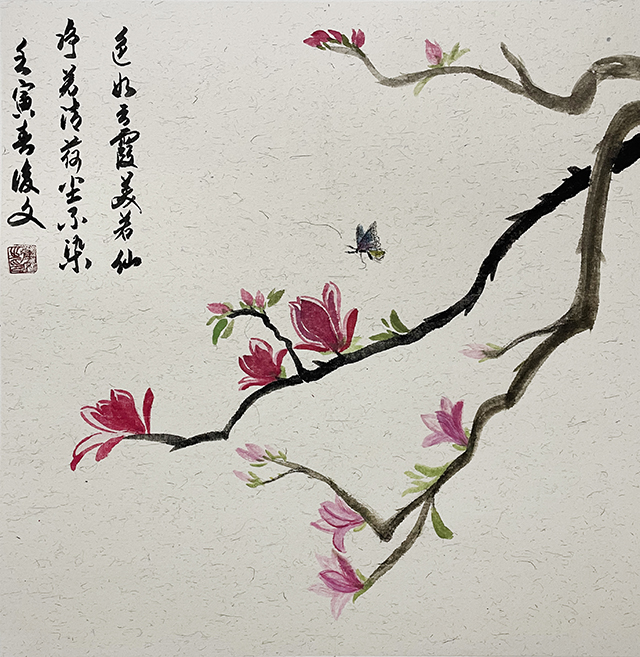 色如云霞美若仙
净若清荷尘不染
壬寅春俊文